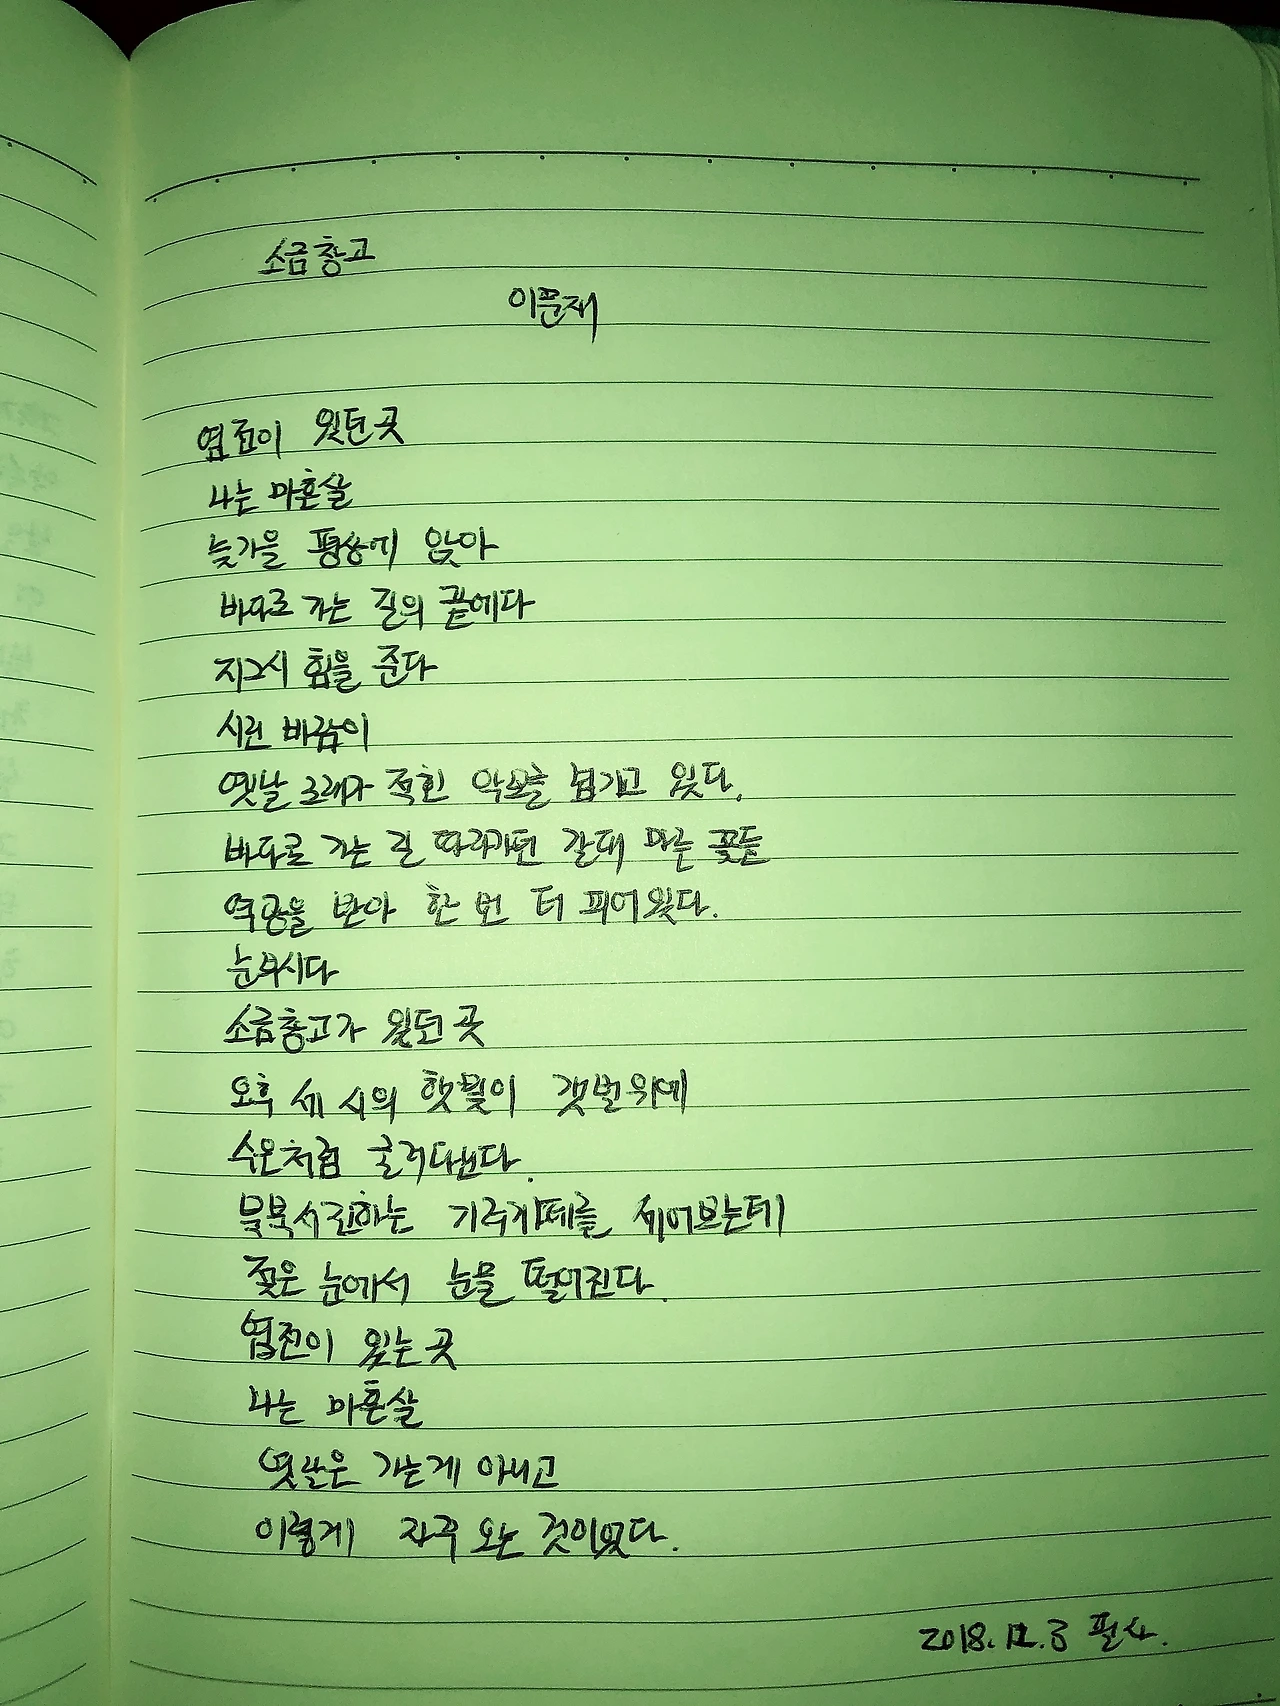 소금창고
이문재
염전이 있던곳
나는 마흔살
늦가을 평상에 앉아
바다로 가는 길의 끝에다
지그시 힘을 준다
시린 바람이
옛날 노래가 적힌 악보를 넘기고 있다.
바다로 가는 길 따라가던 갈대 마른 꽃들
역광을 받아 한 번 더 피어있다.
눈부시다
소금창고가 있던 곳
오후 세 시의 햇빛이 갯벌위에
수은처럼 굴러다닌다.
북북서진하는 기러기떼를 세어보는데
젖은 눈에서 눈물 떨어진다.
염전이 있는 곳
나는 마흔살
옛날은 가는게 아니고
이렇게 자꾸 오는 것이었다.
2018.12.3 필사.